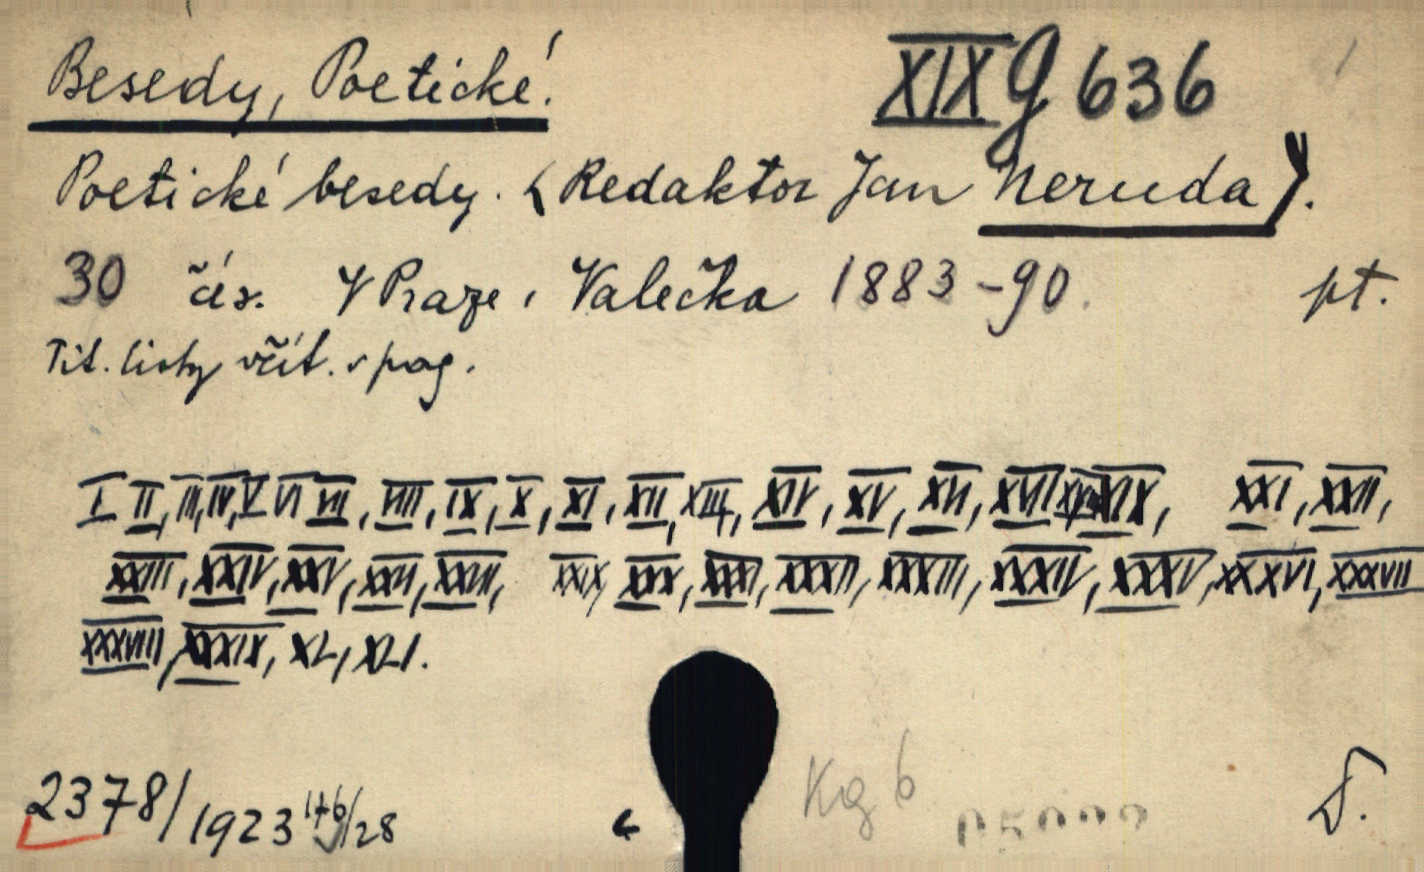 Besedy, Poetické. XIX G 636
Poetické besedy. (Redaktor Jan Neruda).
30 čís. V Praze, Valečka 1883-90. pt.
Tit. listy včít. v pag.
I II, III, IV, V VI VII, VIII, IX, X, XI, XII, XIII, XIV, XV, XVI, XVII XVIII XIX, XXI, XXII,
XXIII, XXIV, XXV, XXVI, XXVII, XXIX, XXX, XXXI, XXXII, XXXIII, XXXIV, XXXV, XXXVI, XXXVII
XXXVIII, XXXIX, XL, XLI.
2378/1923 /28 Kg 6 D.